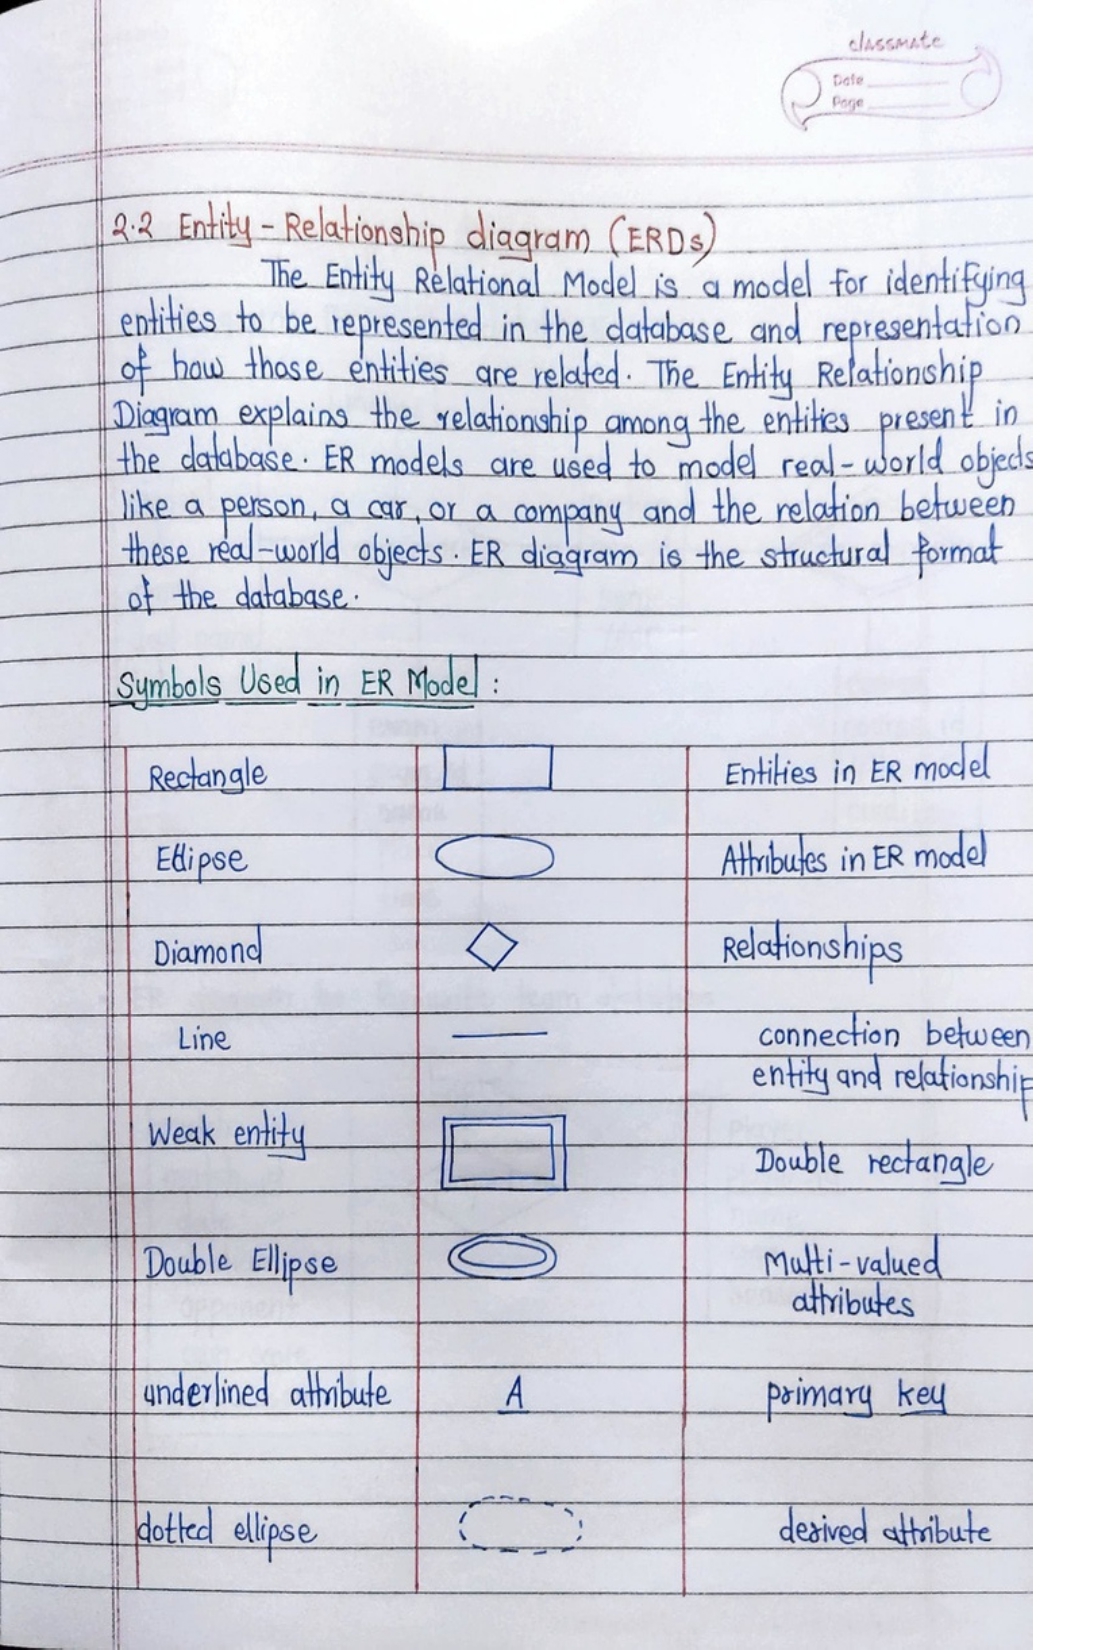 classmate
Date
Page
2.2 Entity - Relationship diagram (ERDs)
The Entity Relational Model is a model for identifying
entities to be represented in the database and representation
of how those entities are related. The Entity Relationship
Diagram explains the relationship among the entities present in
the database. ER models are used to model real-world objects
like a person, a car, or a company and the relation between
these real-world objects. ER diagram is the structural format
of the database.
Symbols Used in ER Model :
Rectangle Entities in ER model
Ellipse Attributes in ER model
Diamond Relationships
Line connection between
entity and relationship
Weak entity Double rectangle
Double Ellipse Multi-valued
attributes
underlined attribute A primary key
dotted ellipse derived attribute